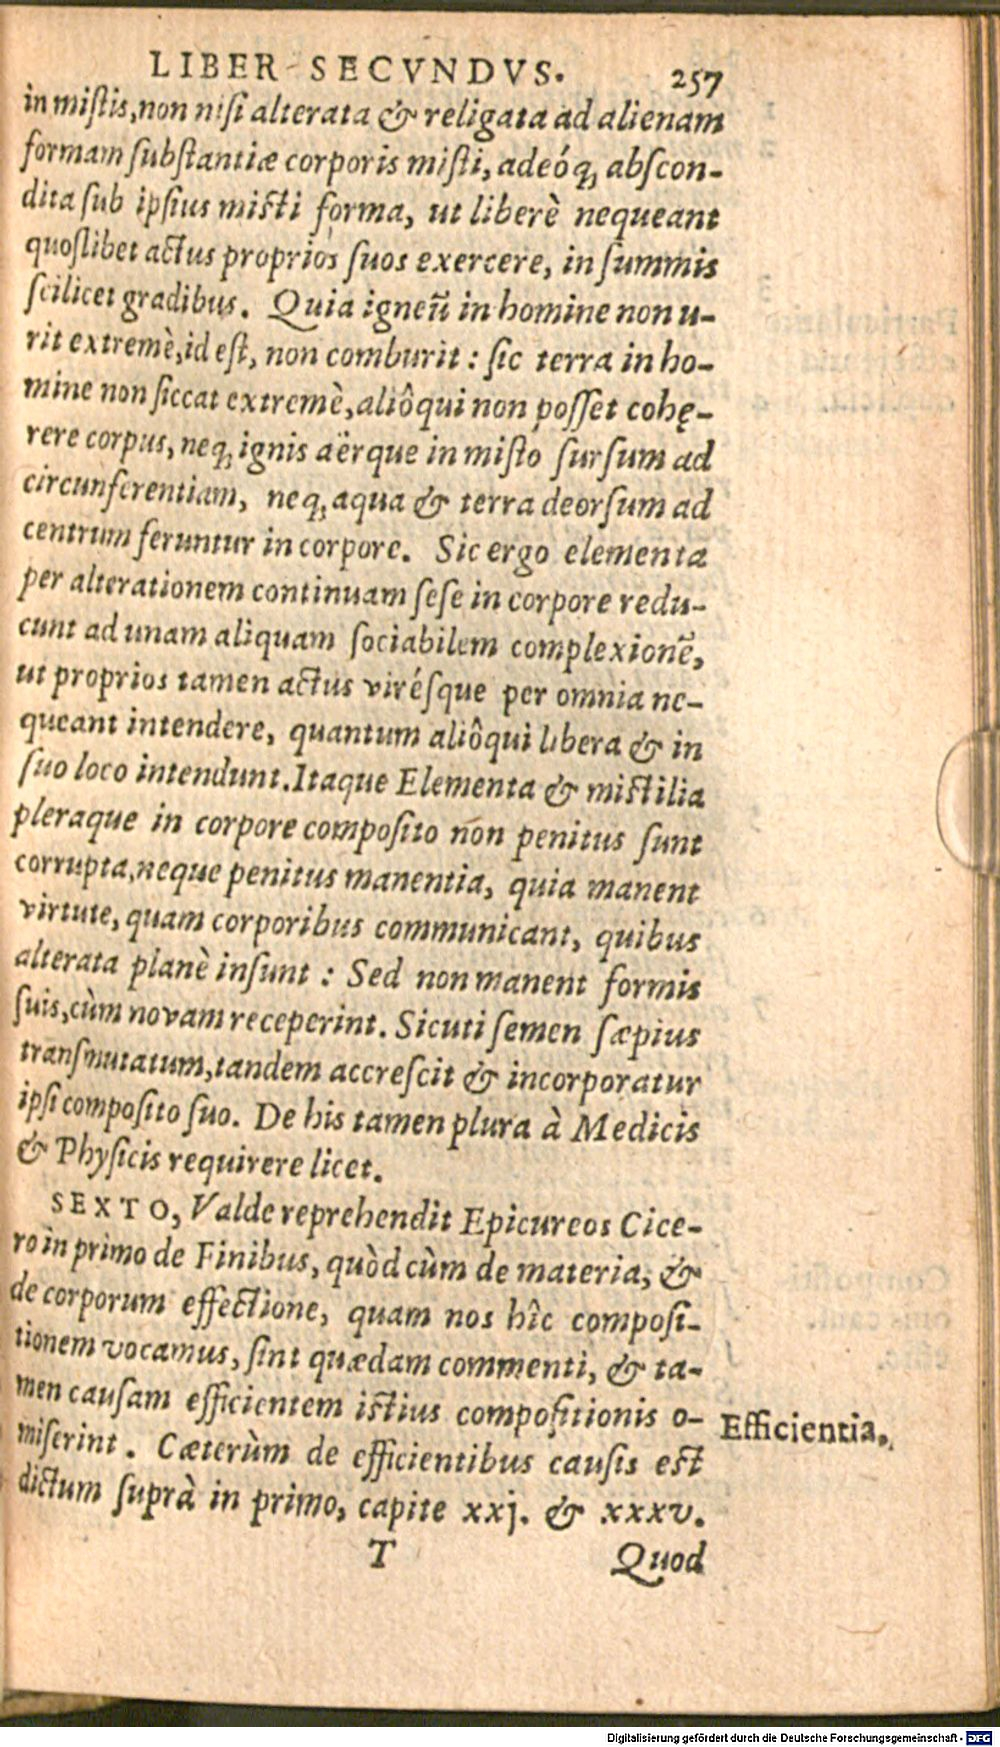 LIBER SECVNDVS. 257
in miſtis, non niſi alterata & religata ad alienam
formam ſubſtantiæ corporis miſti, adeóq́ꝫ abſcon-
dita ſub ipſius miſti forma, ut liberè nequeant
quoſlibet actus proprios ſuos exercere, in ſummis
ſcilicet gradibus. Quia igneū in homine non u-
rit extremè, id eſt, non comburit : ſic terra in ho-
mine non ſiccat extremè, aliôqui non poſſet cohę-
rere corpus, neqꝫ ignis aërque in miſto ſurſum ad
circunferentiam, neqꝫ aqua & terra deorſum ad
centrum feruntur in corpore. Sic ergo elementa
per alterationem continuam ſeſe in corpore redu-
cunt ad unam aliquam ſociabilem complexionē,
ut proprios tamen actus viréſque per omnia ne-
queant intendere, quantum aliôqui libera & in
ſuo loco intendunt. Itaque Elementa & miſtilia
pleraque in corpore compoſito non penitus ſunt
corrupta, neque penitus manentia, quia manent
virtute, quam corporibus communicant, quibus
alterata planè inſunt : Sed non manent formis
ſuis, cùm novam receperint. Sicuti ſemen ſæpius
tranſmutatum, tandem accreſcit & incorporatur
ipſi compoſito ſuo. De his tamen plura à Medicis
& Phyſicis requirere licet.
SEXTO, Valde reprehendit Epicureos Cice-
ro in primo de Finibus, quòd cùm de materia, &
de corporum effectione, quam nos hîc compoſi-
tionem vocamus, ſint quædam commenti, & ta-
men cauſam efficientem iſtius compoſitionis o-
miſerint. Cæterùm de efficientibus cauſis eſt
dictum ſuprà in primo, capite xxj. & xxxv.
Efficientia.
T Quod
Digitalisierung gefördert durch die Deutsche Forschungsgemeinschaft - DFG